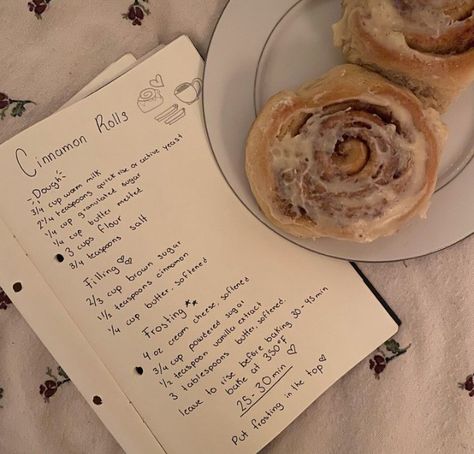 Cinnamon Rolls
Dough
3/4 cup warm milk
2 1/4 teaspoons quick rise or active yeast
1/4 cup granulated sugar
1/4 cup butter melted
3 cups flour
3/4 teaspoons salt
Filling
2/3 cup brown sugar
1 1/2 teaspoons cinnamon
1/4 cup butter, softened
Frosting
4 oz cream cheese, softened
3/4 cup powdered sugar
1/2 teaspoon vanilla extract
3 tablespoons butter, softened.
leave to rise before baking 30-45 min
bake at 350°F
25-30 min
Put frosting in the top